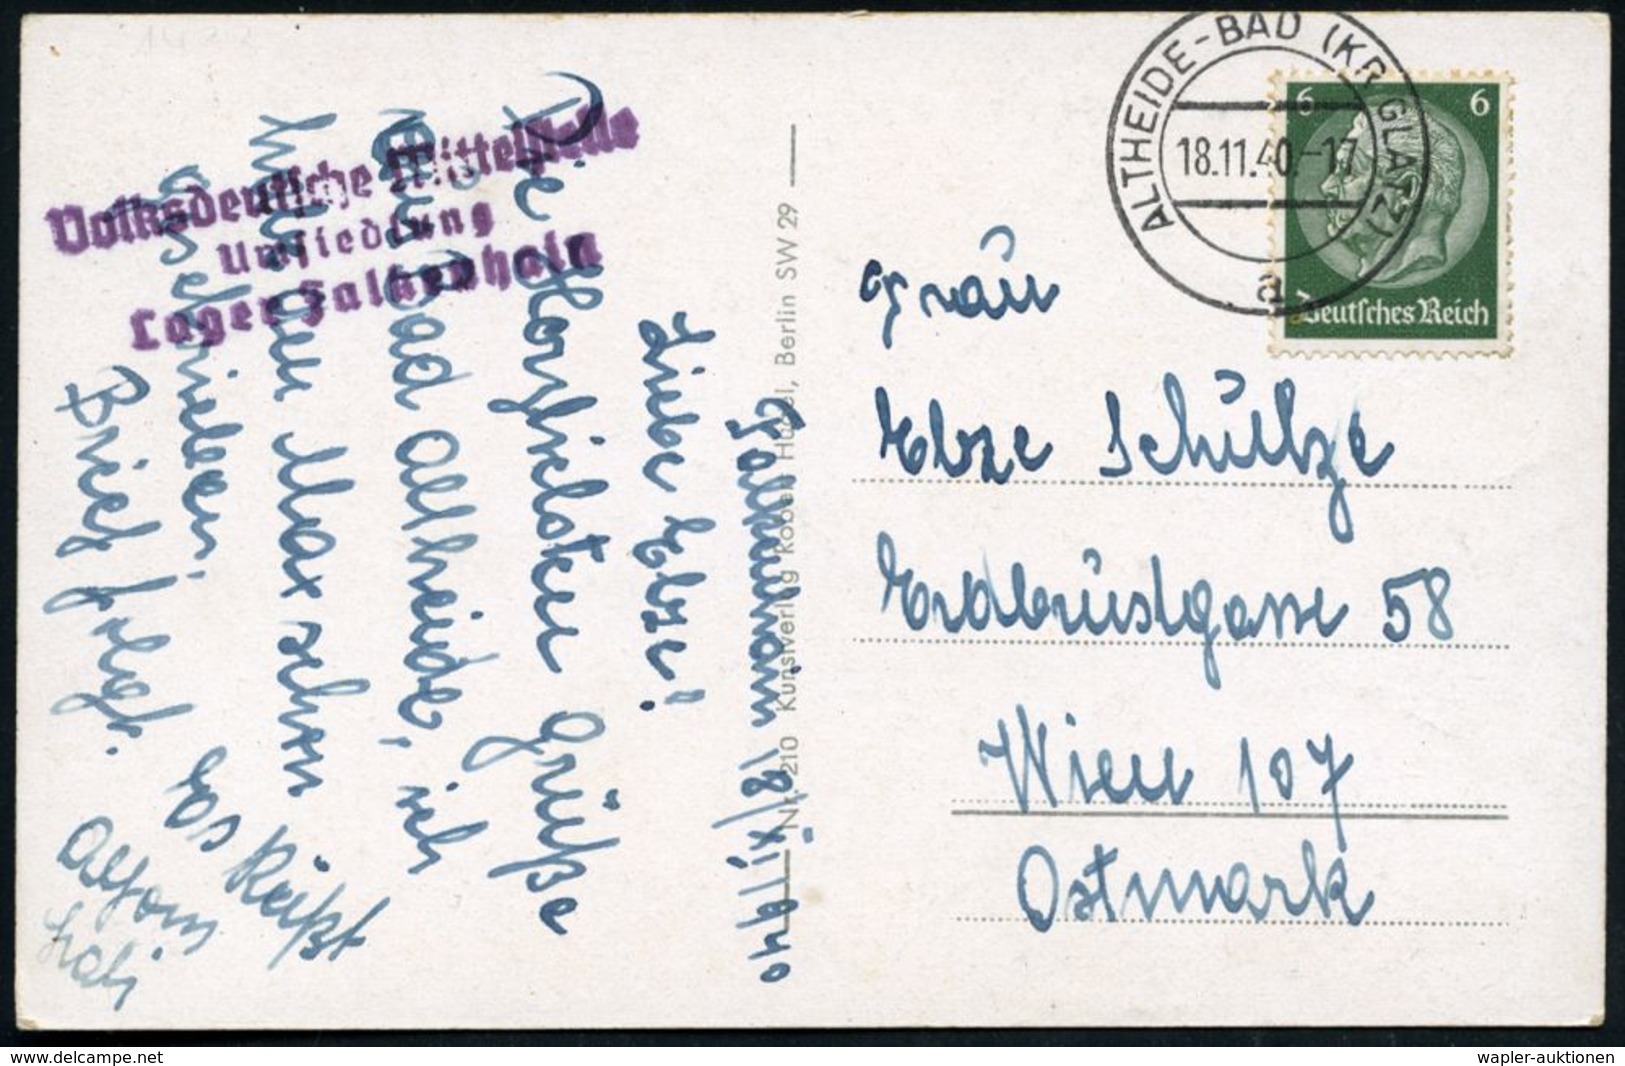 Volksdeutsche Mittelstelle
Umsiedlung
Lager Falkenhain
Falkenhain 18/XI. 1940
Liebe Elze!
Die Herzlichsten Grüße
aus Bad Altheide, ich
habe an Max schon
geschrieben.
Brief folgt.
Es Küßt
Nr. 210 Kunstverlag Robert Hübel, Berlin SW 29
ALTHEIDE-BAD (KR. GLATZ)
18.11.40.-17
a
6 6
Deutsches Reich
Frau
Elze Schultze
Erdbrustgasse 58
Wien 107
Ostmark
www.delcampe.net
wapler-auktionen